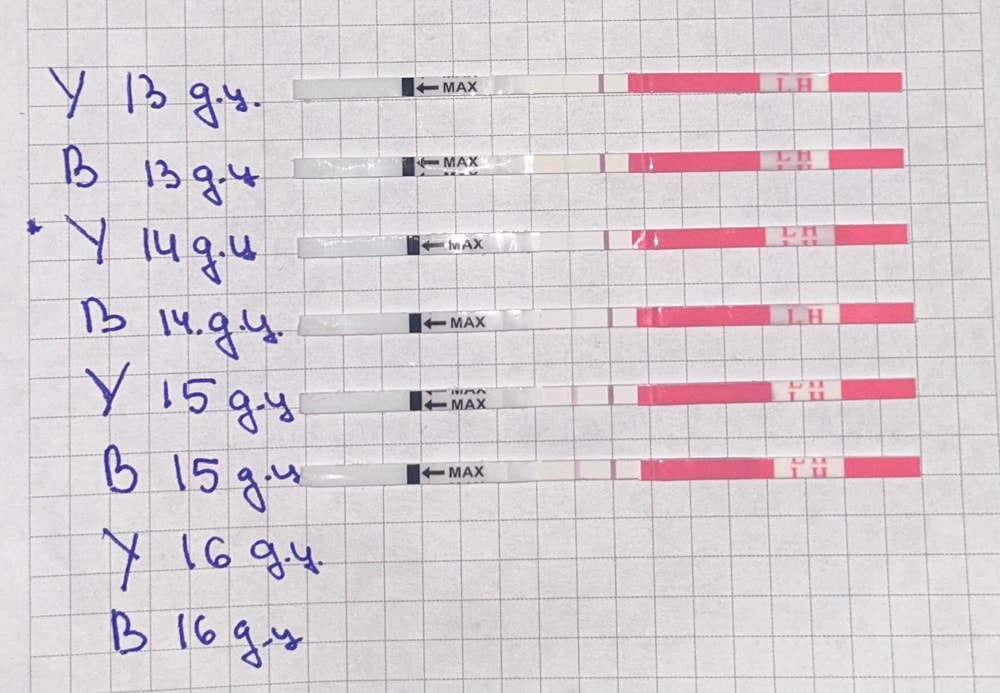 У 13 д.ц. ← MAX LH
В 13 д.ц ← MAX LH
* У 14 д.ц ← MAX LH
В 14. д.ц. ← MAX LH
У 15 д.ц ← MAX LH
В 15 д.ц ← MAX LH
У 16 д.ц.
В 16 д.ц